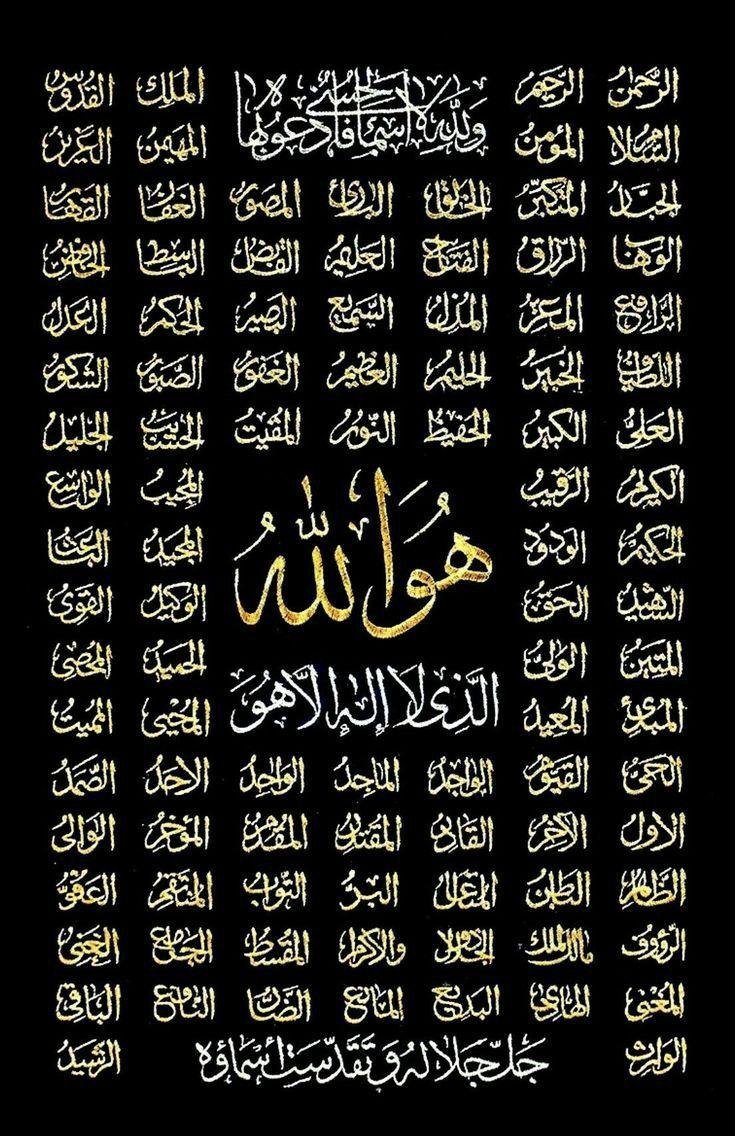 الرَّحمنُ الرَّحيمُ المَلِكُ القُدُّوسُ
وَلِلّٰهِ الأسماءُ الحُسنى فادعوهُ بها
السَّلامُ المؤمنُ المهيمنُ العَزيزُ
الجبَّارُ المتكبِّرُ الخالقُ البارئُ المصورُ الغفارُ القهارُ
الوهاب الرزاق الفتاح العليم القابض الباسط الخافض
الرافع المعز المذل السميع البصير الحكم العدل
اللطيف الخبير الحليم العظيم الغفور الصَّبور الشكور
العليُّ الكبير الحفيظ النُّور المقيت الحسيب الجليل
الكريم الرقيب المجيب الواسع
الحكيم الودود المجيد الباعث
هُوَ اللهُ
الشهيد الحق الوكيل القوى
المتين الولىُّ الحميد المحصى
الَّذِى لَا إِلٰهَ إِلَّا هُوَ
المبدئ المعيد المحيى المميت
الحىُّ القيُّوم الواجد الماجد الواحد الاحد الصَّمد
الاول الآخر القادر المقتدر المقدم المؤخر الوالى
الظاهر الباطن المتعال البرُّ التواب المنتقم العفوُّ
الرؤوف مالك الملك ذو الجلال والاكرام المقسط الجامع الغنى
المغنى الهادى البديع المانع الضار النافع الباقى
الوارث جَلَّ جَلالُهُ وَتَقَدَّسَت أسماؤه الرشيد